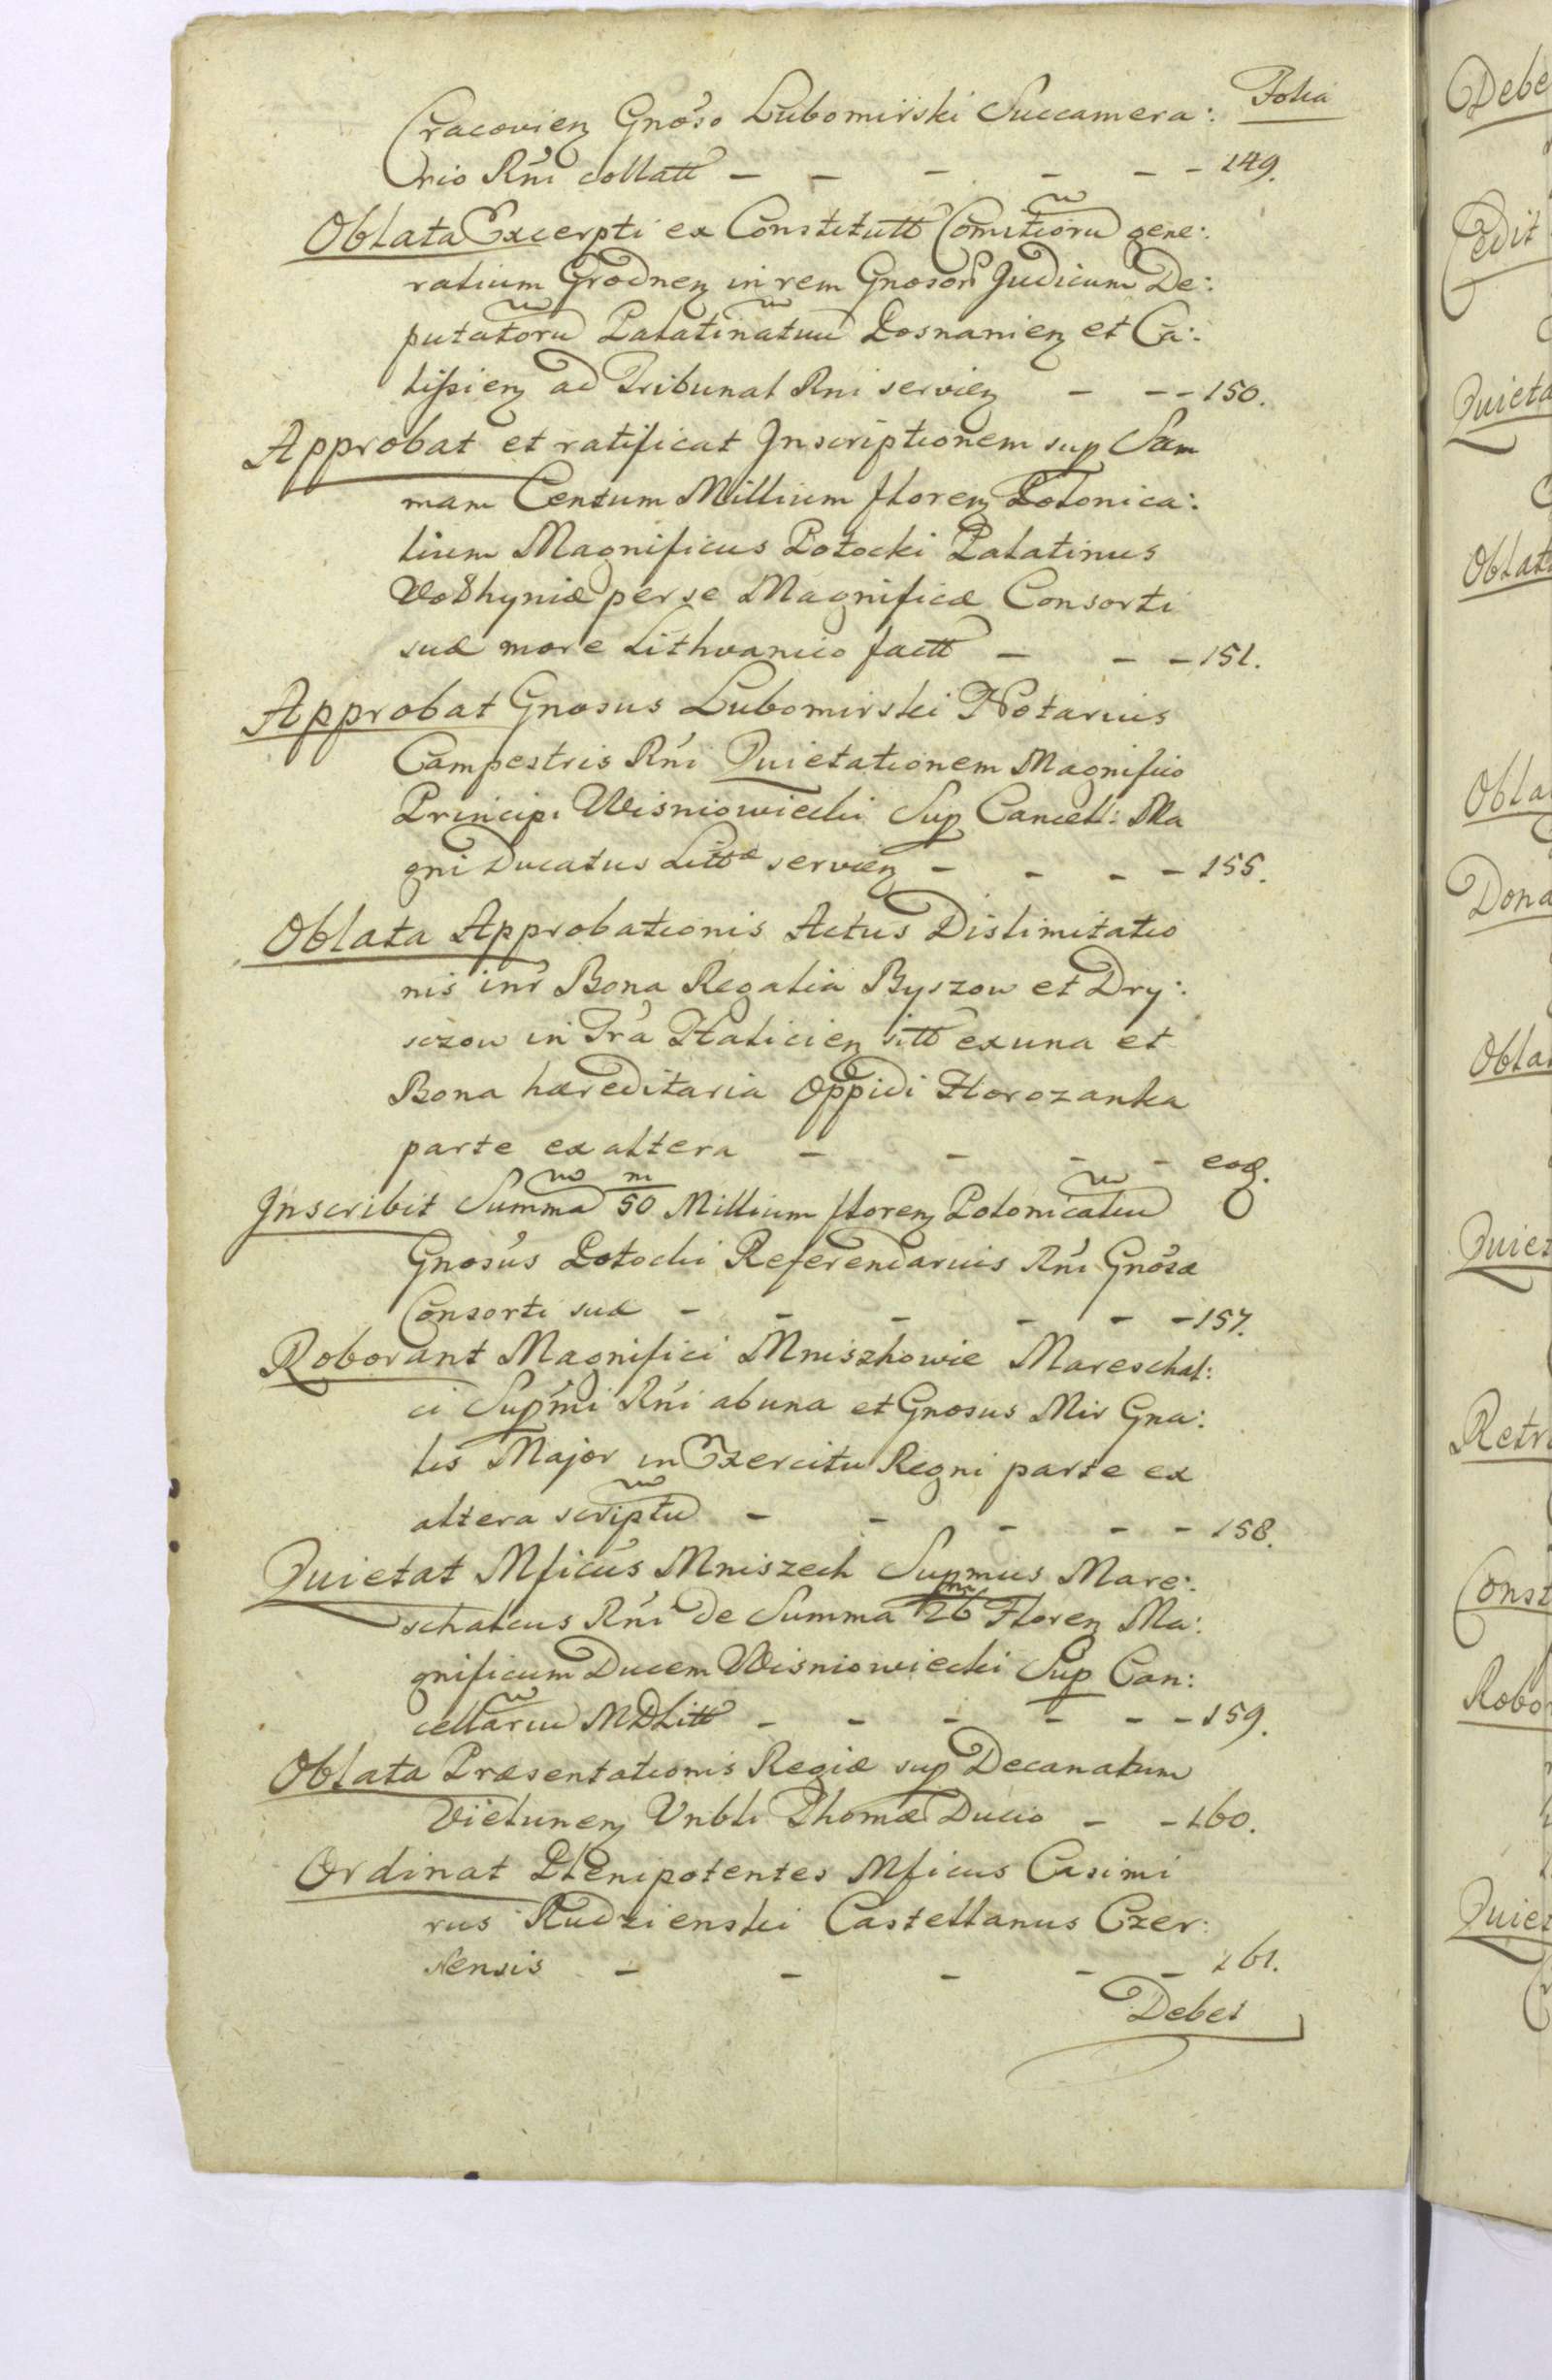 Folia
Cracovien Gnoso Lubomirski Succamera:
rio Rni collatt - - - - - - 149.
Oblata Excerpti ex Constitutt Comitioru gene:
ralium Grodnen in rem Gnosor Judicum De:
putatoru Palatinatuu Posnanien et Ca:
lissien ad Tribunal Rni servien - - - 150.
Approbat et ratificat Inscriptionem sup Sum
mam Centum Millium floren Polonica:
lium Magnificus Potocki Palatinus
Volhyniæ per se Magnificæ Consorti
suæ more Lithvanico factt - - - 151.
Approbat Gnosus Lubomirski Notarius
Campestris Rni Quietationem Magnifico
Principi Wisniowiecki Sup Cancell: Ma
gni Ducatus Littæ servien - - - - 155.
Oblata Approbationis Actus Dislimitatio
nis inr Bona Regalia Byszow et Dry:
sczow in Tra Halicien sitt ex una et
Bona hæreditaria Oppidi Horozanka
parte ex altera - - - - eod.
Inscribit Summa 50 m Millium floren Polonicaliu
Gnosus Potocki Referendarius Rni Gnosæ
Consorti suæ - - - - - - 157.
Roborant Magnifici Mniszhowie Mareschal:
ci Supmi Rni ab una et Gnosus Mir Gna:
lis Major in Exercitu Regni parte ex
altera scriptu - - - - - 158.
Quietat Mficus Mniszech Supmus Mare:
schalcus Rni de Summa 26 m Floren Ma:
gnificum Ducem Wisniowiecki Sup Can:
cellariu MDLitt - - - - - - 159.
Oblata Præsentationis Regiæ sup Decanatum
Vielunen Vnbli Thomæ Ducio - - 160.
Ordinat Plenipotentes Mficus Casimi
rus Rudzienski Castellanus Czer:
nensis - - - - - 161.
Debet
Debe
Cedit
Quieta
Oblat
Obla
Dona
Obla
Quiet
Retr
Const
Robo
Quiet